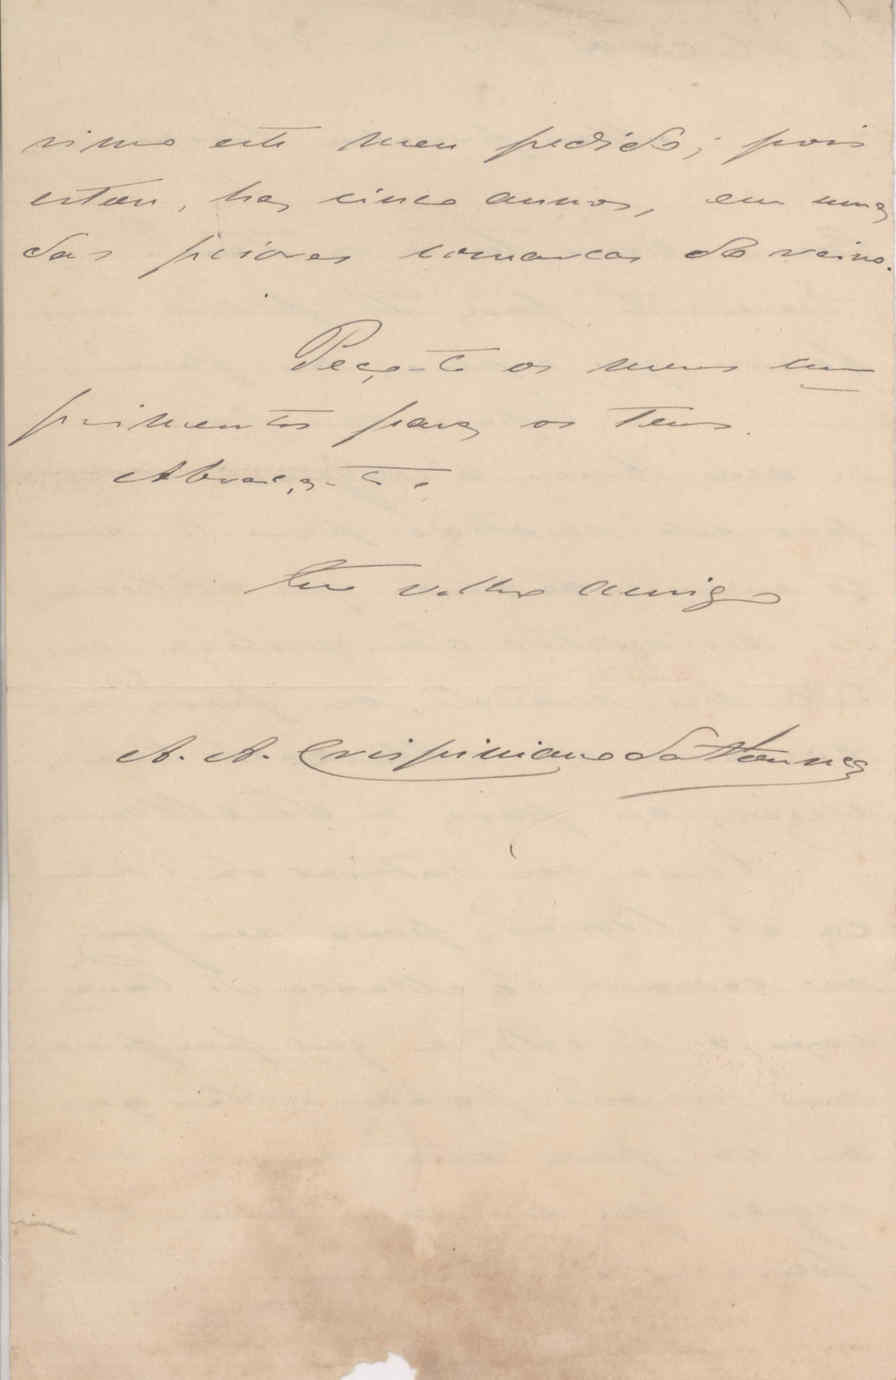 simo este meu pedido; pois
estou, ha, cinco annos, em uma
das peiores comarcas do reino.
Peço-te os meus cum
primentos para os teus.
Abraça-te,
teu velho amigo
A. A. Crispiniano da